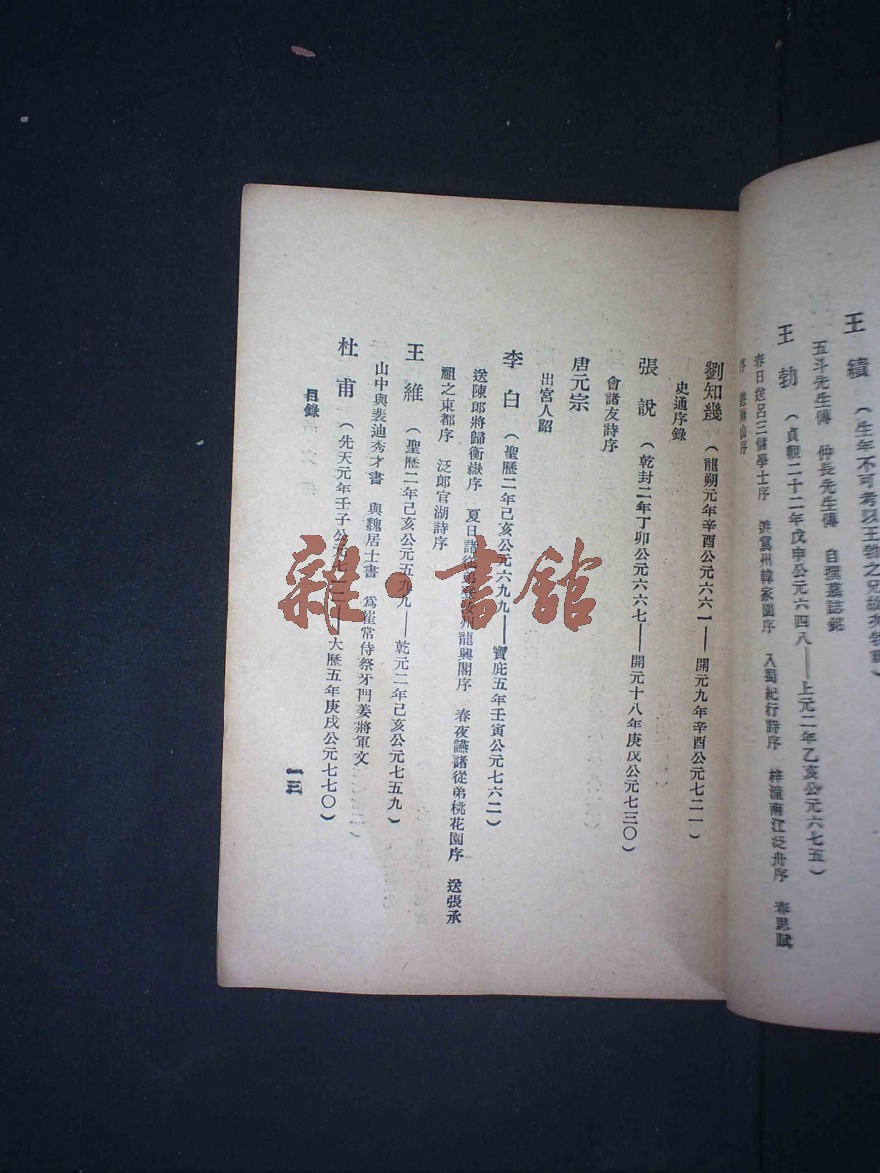 王績（生年不可考以王勃之兄
五斗先生傳　仲長先生傳　自撰墓誌銘
王勃（貞觀二十二年戊申公元六四八——上元二年乙亥公元六七五）
春日送呂三儲學士序　遊冀州韓家園序　入蜀紀行詩序　梓潼南江泛舟序　春思賦
序　遊山序
劉知幾（龍朔元年辛酉公元六六一——開元九年辛酉公元七二一）
史通序錄
張說（乾封二年丁卯公元六六七——開元十八年庚戊公元七三〇）
會諸友詩序
唐元宗
出宮人詔
李白（聖歷二年己亥公元六九九——寶庇五年壬寅公元七六二）
送陳郎將歸衡嶽序　夏日諸從弟州龍興閣序　春夜讌諸從弟桃花園序　送張承
祖之東都序　泛郎官湖詩序
王維（聖歷二年己亥公元五九九——乾元二年己亥公元七五九）
山中與裴迪秀才書　與魏居士書　爲崔常侍祭牙門姜將軍文
杜甫（先天元年壬子公元七一二——大歷五年庚戌公元七七〇）
目錄
一三
雜·書館